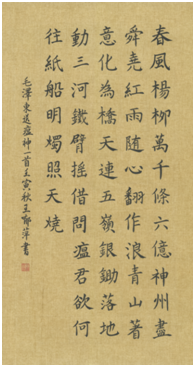 春風楊柳萬千條六億神州盡
舜堯紅雨隨心翻作浪青山著
意化為橋天連五嶺銀鋤落地
動三河鐵臂搖借問瘟君欲何
往紙船明燭照天燒
毛澤東送瘟神一首壬寅秋王萍書